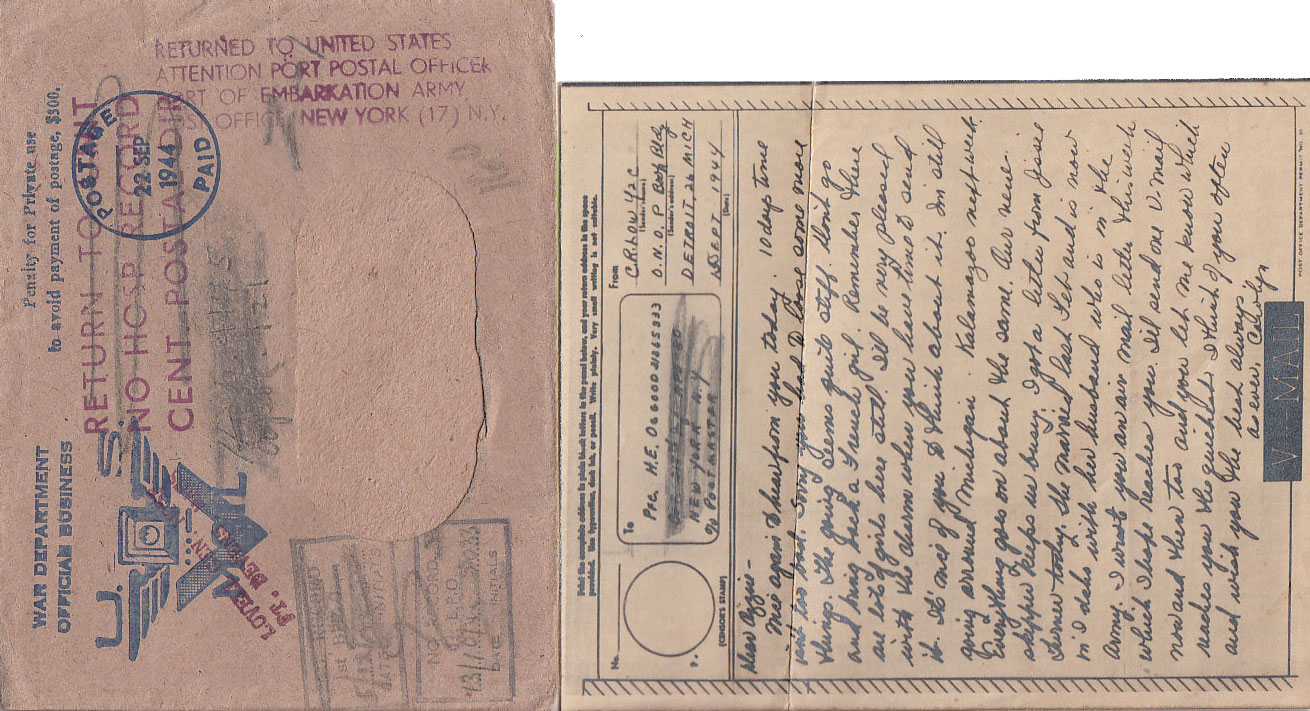 WAR DEPARTMENT
OFFICIAL BUSINESS
Penalty for Private use
to avoid payment of postage, $300.
POSTAGE
22 SEP
1944
PAID
U.S.
MAIL
RETURN TO
NO HOSP RECORD
CENT. POSTAL DIR
RETURNED TO UNITED STATES
ATTENTION PORT POSTAL OFFICER
PORT OF EMBARKATION ARMY
POST OFFICE NEW YORK (17) N.Y.
NO RECORD
DATE
INITIALS
Print the complete address in plain block letters in the panel below, and your return address in the space
provided. Use typewriter, dark ink, or pencil. Write plainly. Very small writing is not suitable.
No.
(CENSOR'S STAMP)
To
Pfc. M.E. OGOOD 2126333
NEW YORK N.Y.
c/o POSTMASTER
From
C.R. Low Y2C
(Sender's name)
O.N.O.P Book Bldg
(Sender's address)
DETROIT, 26 MICH
15 SEPT 1944
(Date)
Dear Ozzie -
Nice again to hear from you today. 10 day time
not too bad. Sorry you had to lose some more
things. The going seems quite stiff. Don't go
and bring back a French girl. Remember there
are lots of girls here still. I'll be very pleased
with the charm when you have time to send
it. It's nice of you to think about it. I'm still
going around Michigan. Kalamazoo next week.
Everything goes on about the same. Our new
skipper keeps us busy. I got a letter from Jessie
today. She married last Feb and is now
in with her husband who is in the
Army. I wrote you an air mail letter this week
which I hope reaches you. I'll send one V-mail
now and then too and you let me know which
reaches you the quickest. I think of you often
and wish you the best always
as ever. Carolyn
V···-MAIL
POST OFFICE DEPARTMENT PERMIT NO.